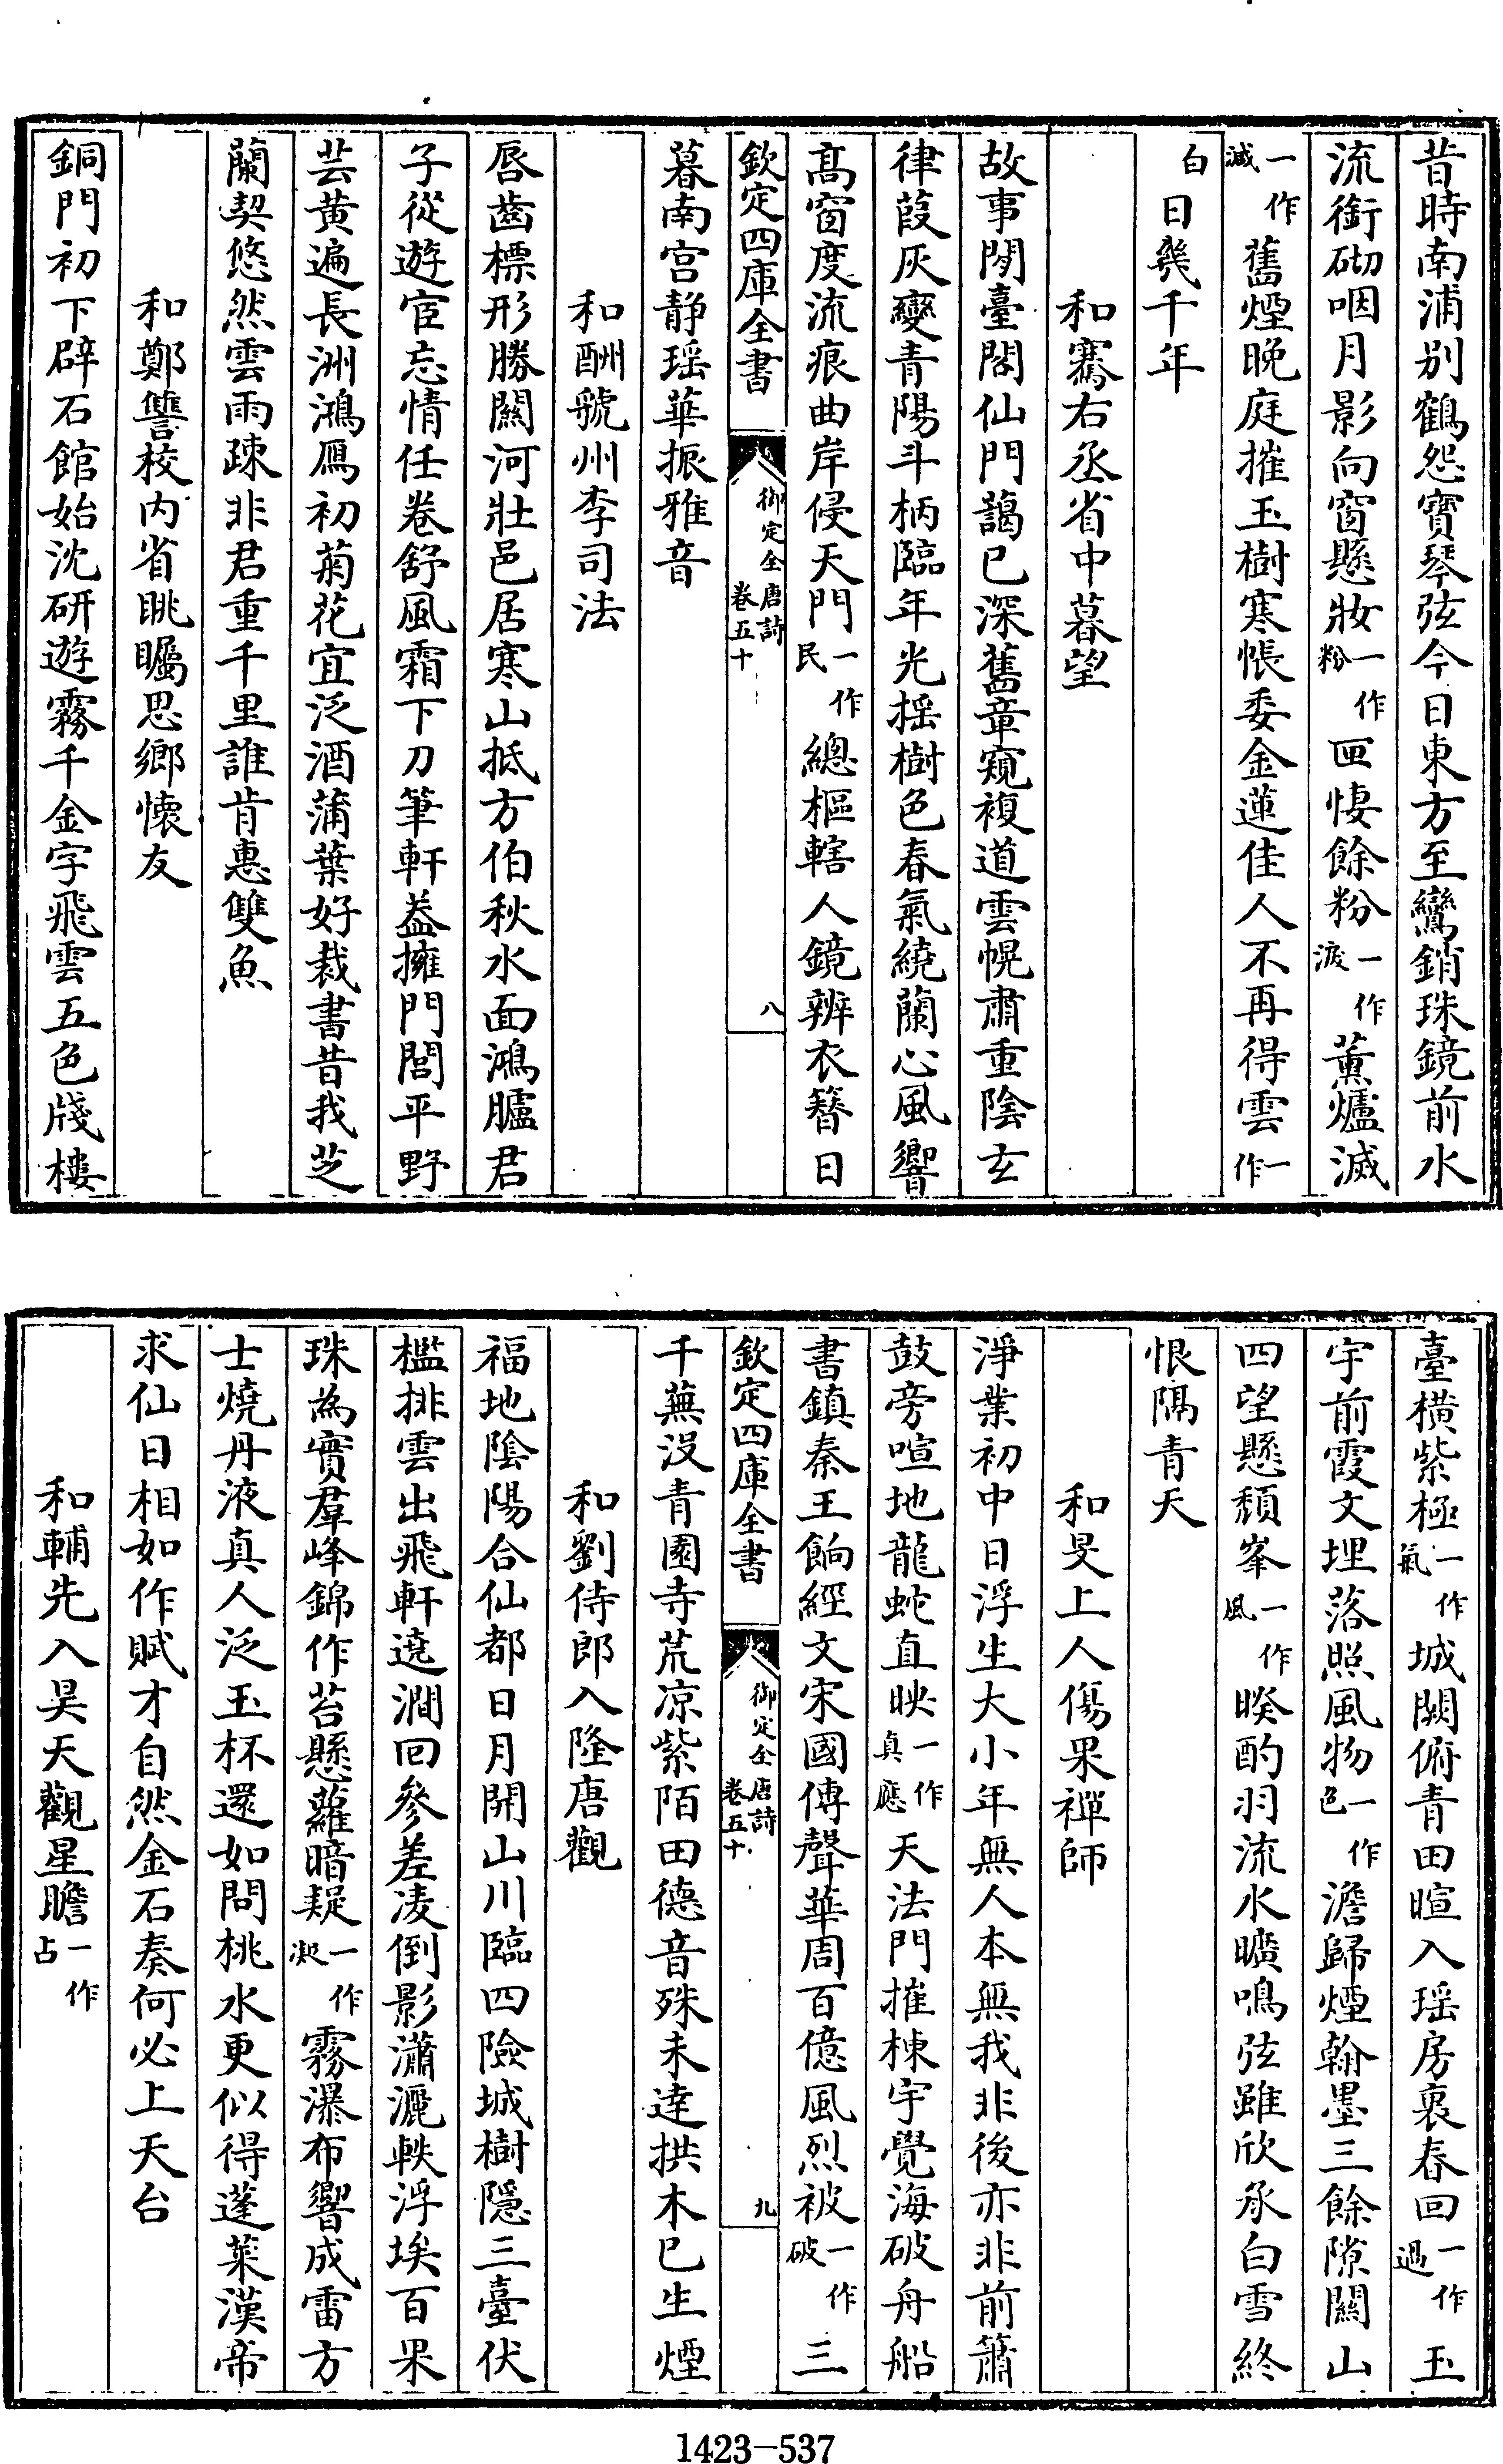 昔時南浦别鶴怨寳琴弦今日東方至鸞銷珠鏡前水
流銜砌咽月影向窗懸妝一作粉匣悽餘粉一作淚薰爐滅
一作減舊煙晚庭摧玉樹寒悵委金蓮佳人不再得雲一作
白日幾千年
和騫右丞省中暮望
故事閒臺閣仙門藹已深舊章窺複道雲幌肅重陰玄
律葭灰變青陽斗柄臨年光摇樹色春氣繞蘭心風響
髙窗度流痕曲岸侵天門一作民總樞轄人鏡辨衣簪日
欽定四庫全書
御定全唐詩
卷五十
八
暮南宫静瑶華振雅音
和酬虢州李司法
唇齒標形勝關河壯邑居寒山抵方伯秋水面鴻臚君
子從遊宦忘情任卷舒風霜下刀筆軒葢擁門閭平野
芸黄遍長洲鴻鴈初菊花宜泛酒蒲葉好裁書昔我芝
蘭契悠然雲雨疎非君重千里誰肯惠雙魚
和鄭讐校内省眺矚思鄉懐友
銅門初下辟石館始沈研遊霧千金字飛雲五色牋樓
臺横紫極一作氣城闕俯青田暄入瑶房裏春回一作過玉
宇前霞文埋落照風物一作色澹歸煙翰墨三餘隙關山
四望懸頽峯一作風睽酌羽流水曠鳴弦雖欣承白雪終
恨隔青天
和旻上人傷果禪師
淨業初中日浮生大小年無人本無我非後亦非前簫
鼓旁喧地龍蛇直映一作真應天法門摧棟宇覺海破舟船
書鎮秦王餉經文宋國傳聲華周百億風烈被一作破三
欽定四庫全書
御定全唐詩
卷五十
九
千蕪没青園寺荒凉紫陌田德音殊未逹拱木已生煙
和劉侍郎入隆唐觀
福地陰陽合仙都日月開山川臨四險城樹隱三臺伏
檻排雲出飛軒遶澗回參差凌倒影瀟灑軼浮埃百果
珠為實羣峰錦作苔懸蘿暗疑一作凝霧瀑布響成雷方
士燒丹液真人泛玉杯還如問桃水更似得蓬萊漢帝
求仙日相如作賦才自然金石奏何必上天台
和輔先入昊天觀星瞻一作占
1423-537